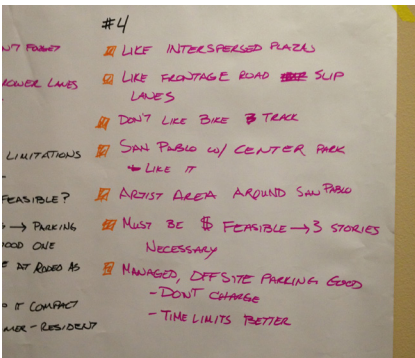 #4
N'T FORGET
ROWER LANES
LIMITATIONS
FEASIBLE?
→ PARKING
OOD ONE
AT RODEO AS
IT COMPACT
- RESIDENT
LIKE INTERSPERSED PLAZAS
LIKE FRONTAGE ROAD SLIP
LANES
DON'T LIKE BIKE TRACK
SAN PABLO W/ CENTER PARK
LIKE IT
ARTIST AREA AROUND SAN PABLO
MUST BE $ FEASIBLE → 3 STORIES
NECESSARY
MANAGED, OFFSITE PARKING GOOD
- DON'T CHARGE
- TIME LIMITS BETTER